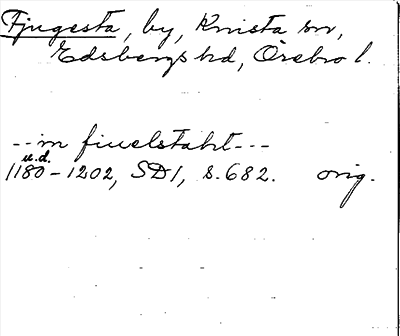 Fjugesta, by, Knista sn,
Edsbergs hd, Örebro l.
--- in fiuelstaht ---
u.d.
1180-1202, SD1, s. 682. orig.